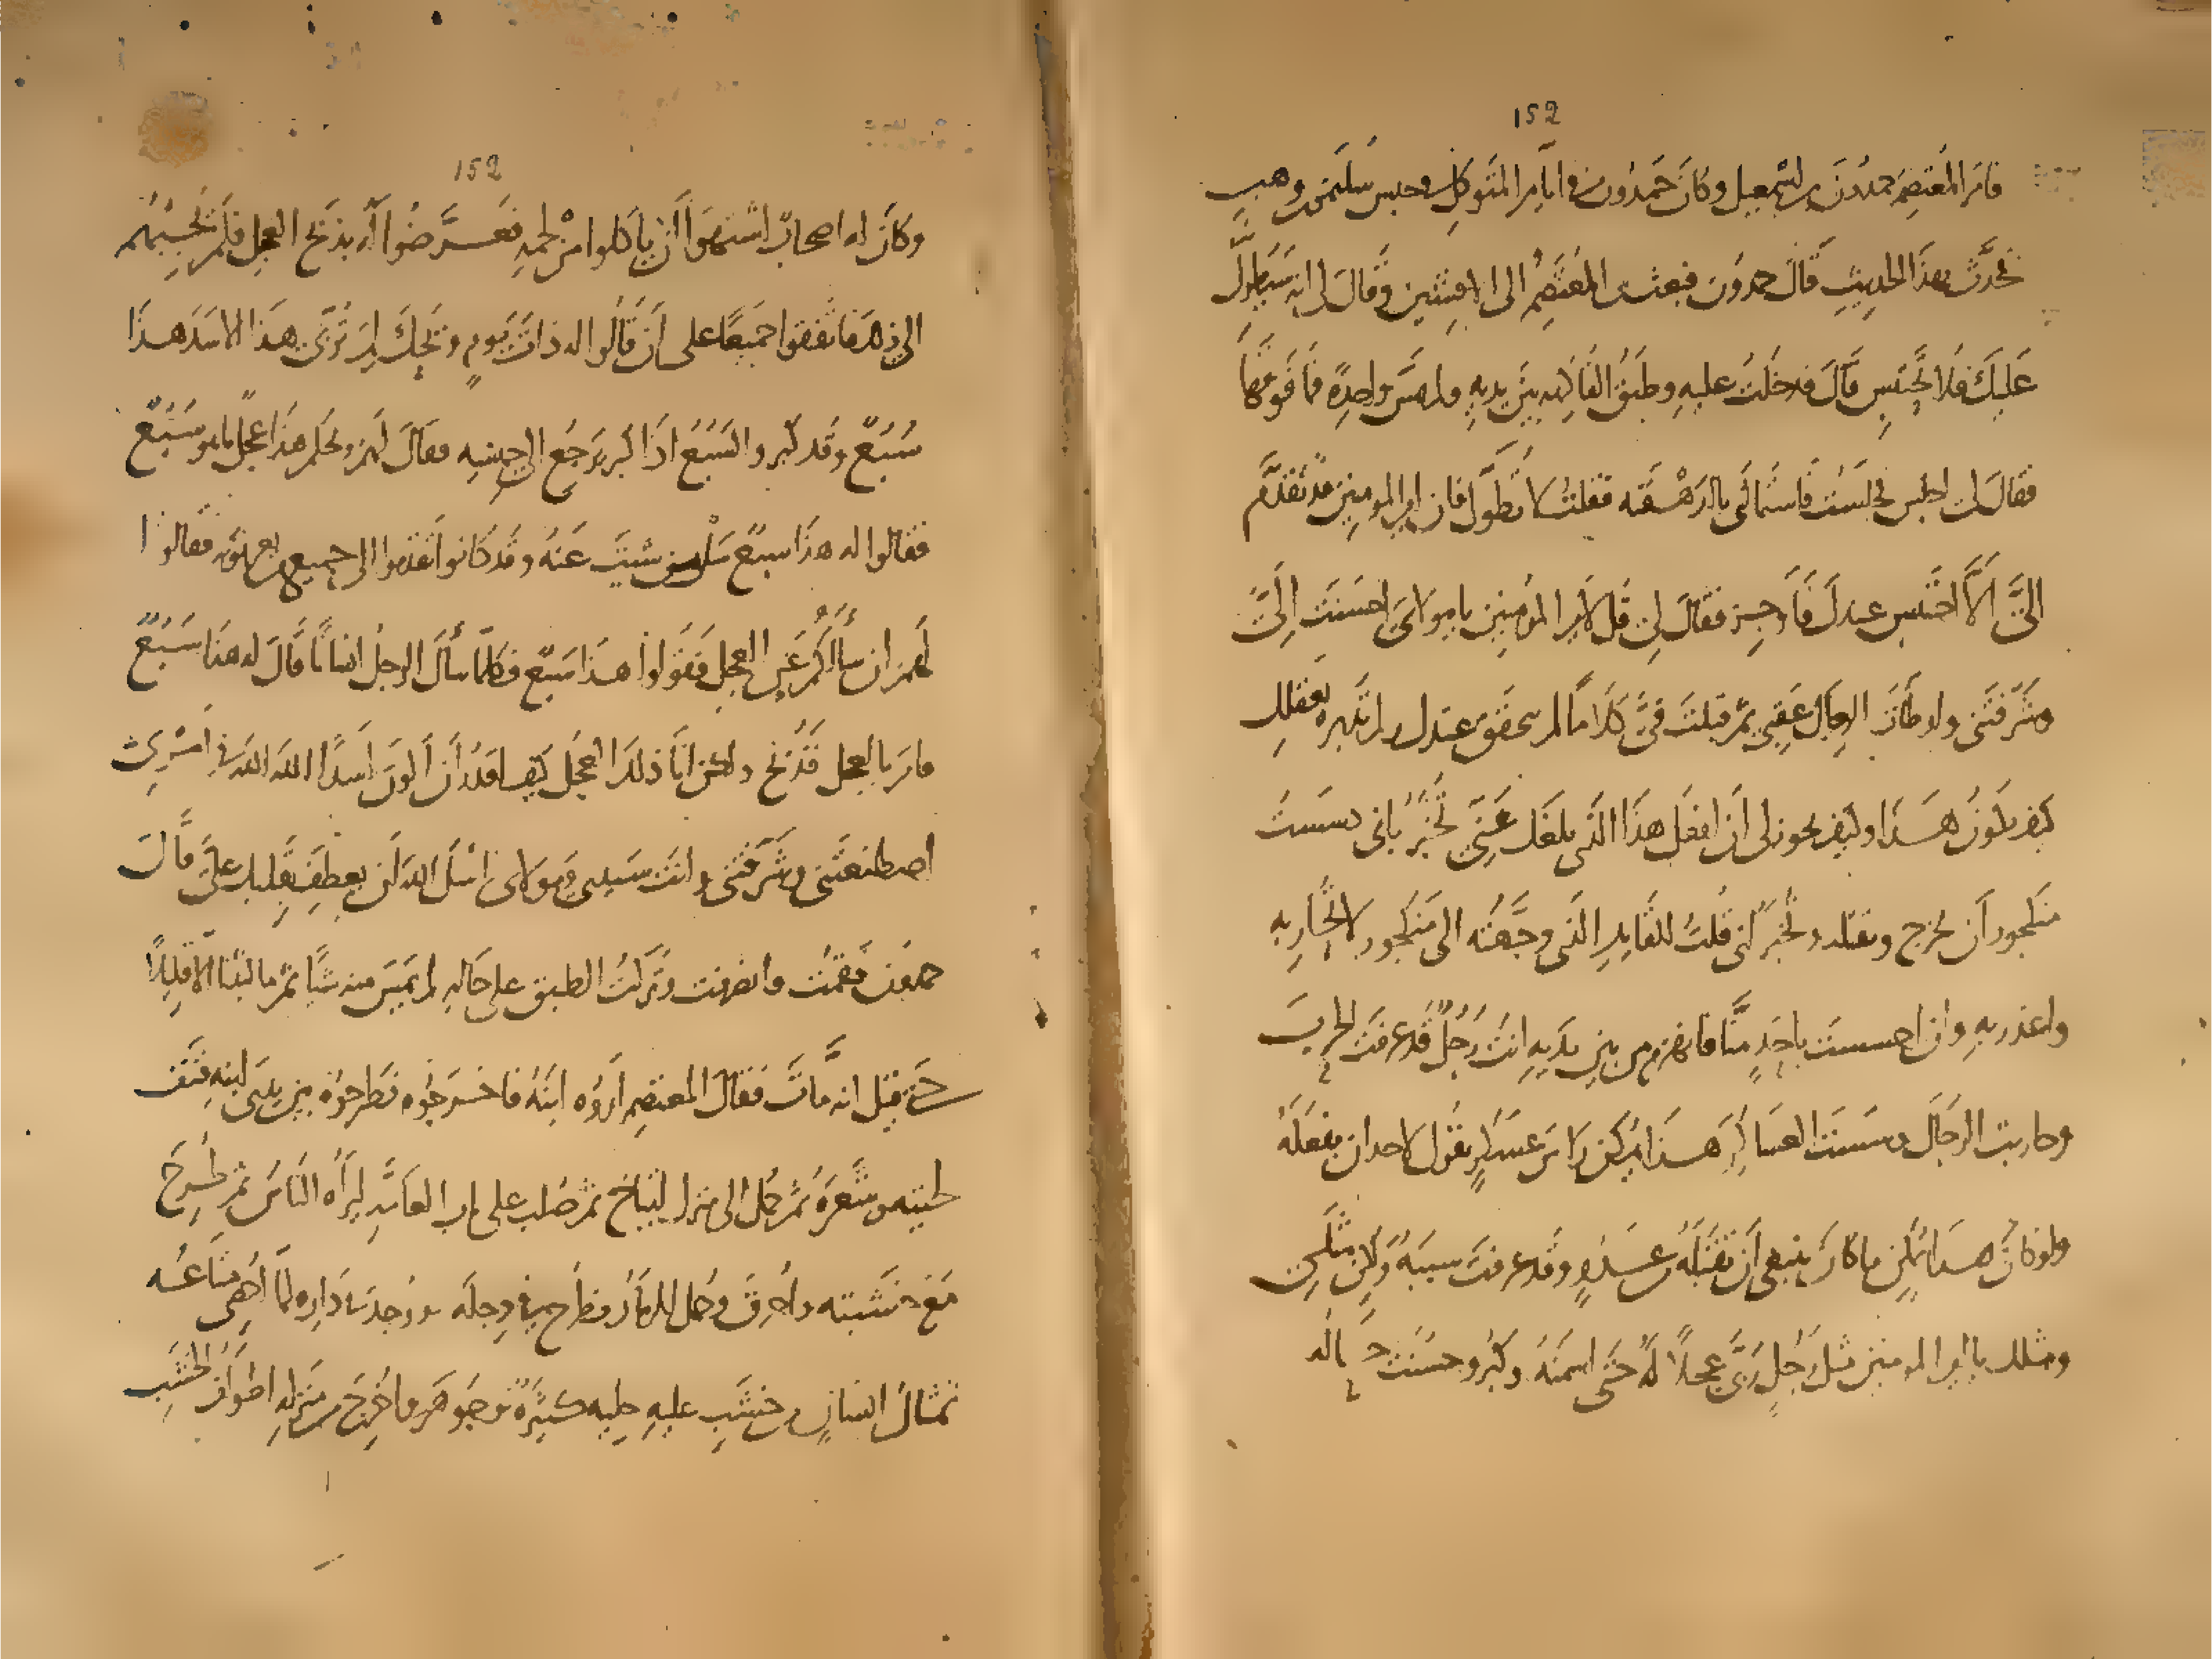 152
فامر المعتصم حمدون بن اسمعيل وكان حمدون في ايام المتوكل في حبس سليمن بن وهب
فحدث بهذا الحديث قال حمدون فبعث بي المعتصم الى الافشين وقال لي انه سيطول
عليك فلا تحتبس قال فدخلت عليه وطبق الفاكهه بين يديه ولم يمس واحدة فما فوقها
فقال لي اجلس فجلست فاستمالني بالدهقنه فقلت لا تطول فان امير المومنين قد تقدم
الي الا احتبس عندك فاوجز فقال لي قل لامير المؤمنين يا مولاي احسنت الي
وشرفتني واوطات الرجال عقبي ثم قبلت في كلاما لم يتحقق عندك ولم تدبره بعقلك
كيف يكون هذا وكيف يجوز لي ان افعل هذا الذي بلغك عني تخبر باني دسست
منكجور ان يخرج وتقبله وتخبر اني قلت للقايد الذي وجهته الى منكجور لا تحاربه
واعذر به وان احسست باحد منا فانهزم من بين يديه انت رجل قد عرفت الحرب
وحاربت الرجال وسست العساكر هذا يمكن راس عسكر يقول لاحد ان يفعله
ولو كان هذا يمكن ما كان ينبغي ان تقبله من عدو وقد عرفت سببه ولكن مثلي
ومثلك يا امير المومنين مثل رجل ربى عجلا له حتى اسمنه وكبر وحسنت حاله
152
وكان له اصحاب اشتهوا ان ياكلوا من لحمه فعرضوا له بذبح العجل فلم يجبهم
الى ذلك فاتفقوا جميعا على ان قالوا له ذات يوم ويحك لم تربي هذا الاسد هذا
سبع وقد كبر والسبع اذا كبر يرجع الى جنسه فقال لهم ويحكم هذا عجل ما هو سبع
فقالوا له هذا سبع سل من شيت عنه وقد كانوا تقدموا الى جميع من يعرفونه فقالوا
لهم ان سالكم عن العجل فقولوا هذا سبع فكلما سأل الرجل انسانا قال له هذا سبع
فامر بالعجل فذبح ولكن انا ذلك العجل كيف اقدر ان اكون اسدا الله الله في امري
اصطنعتني وشرفتني وانت سيدي ومولاي اسل الله ان يعطف بقلبك علي قال
حمدون فقمت وانصرفت وتركت الطبق على حاله لم يمس منه شيا ثم ما لبثنا الا قليلا
حتى قيل انه مات فقال المعتصم اروه ابنه فاخرجوه فطرحوه بين يدي ابنه فنتف
لحيته وشعره ثم حمل الى منزل ايتاخ ثم صلب على باب العامه ليراه الناس ثم طرح
مع خشبته واحرق وحمل الرماد وطرح في دجله ووجد في داره لما احصي متاعه
تمثال انسان من خشب عليه حليه كثيرة وجوهر واخرج من منزله اطواف الخشب